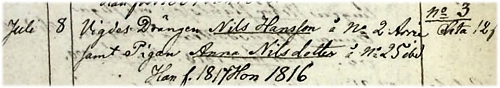 No 3
Jule 8 Vigdes Drängen Nils Hansson å No 2 Arrie
samt Pigan Anna Nilsdotter å No 25 ibd
Han f. 1817 Hon 1816